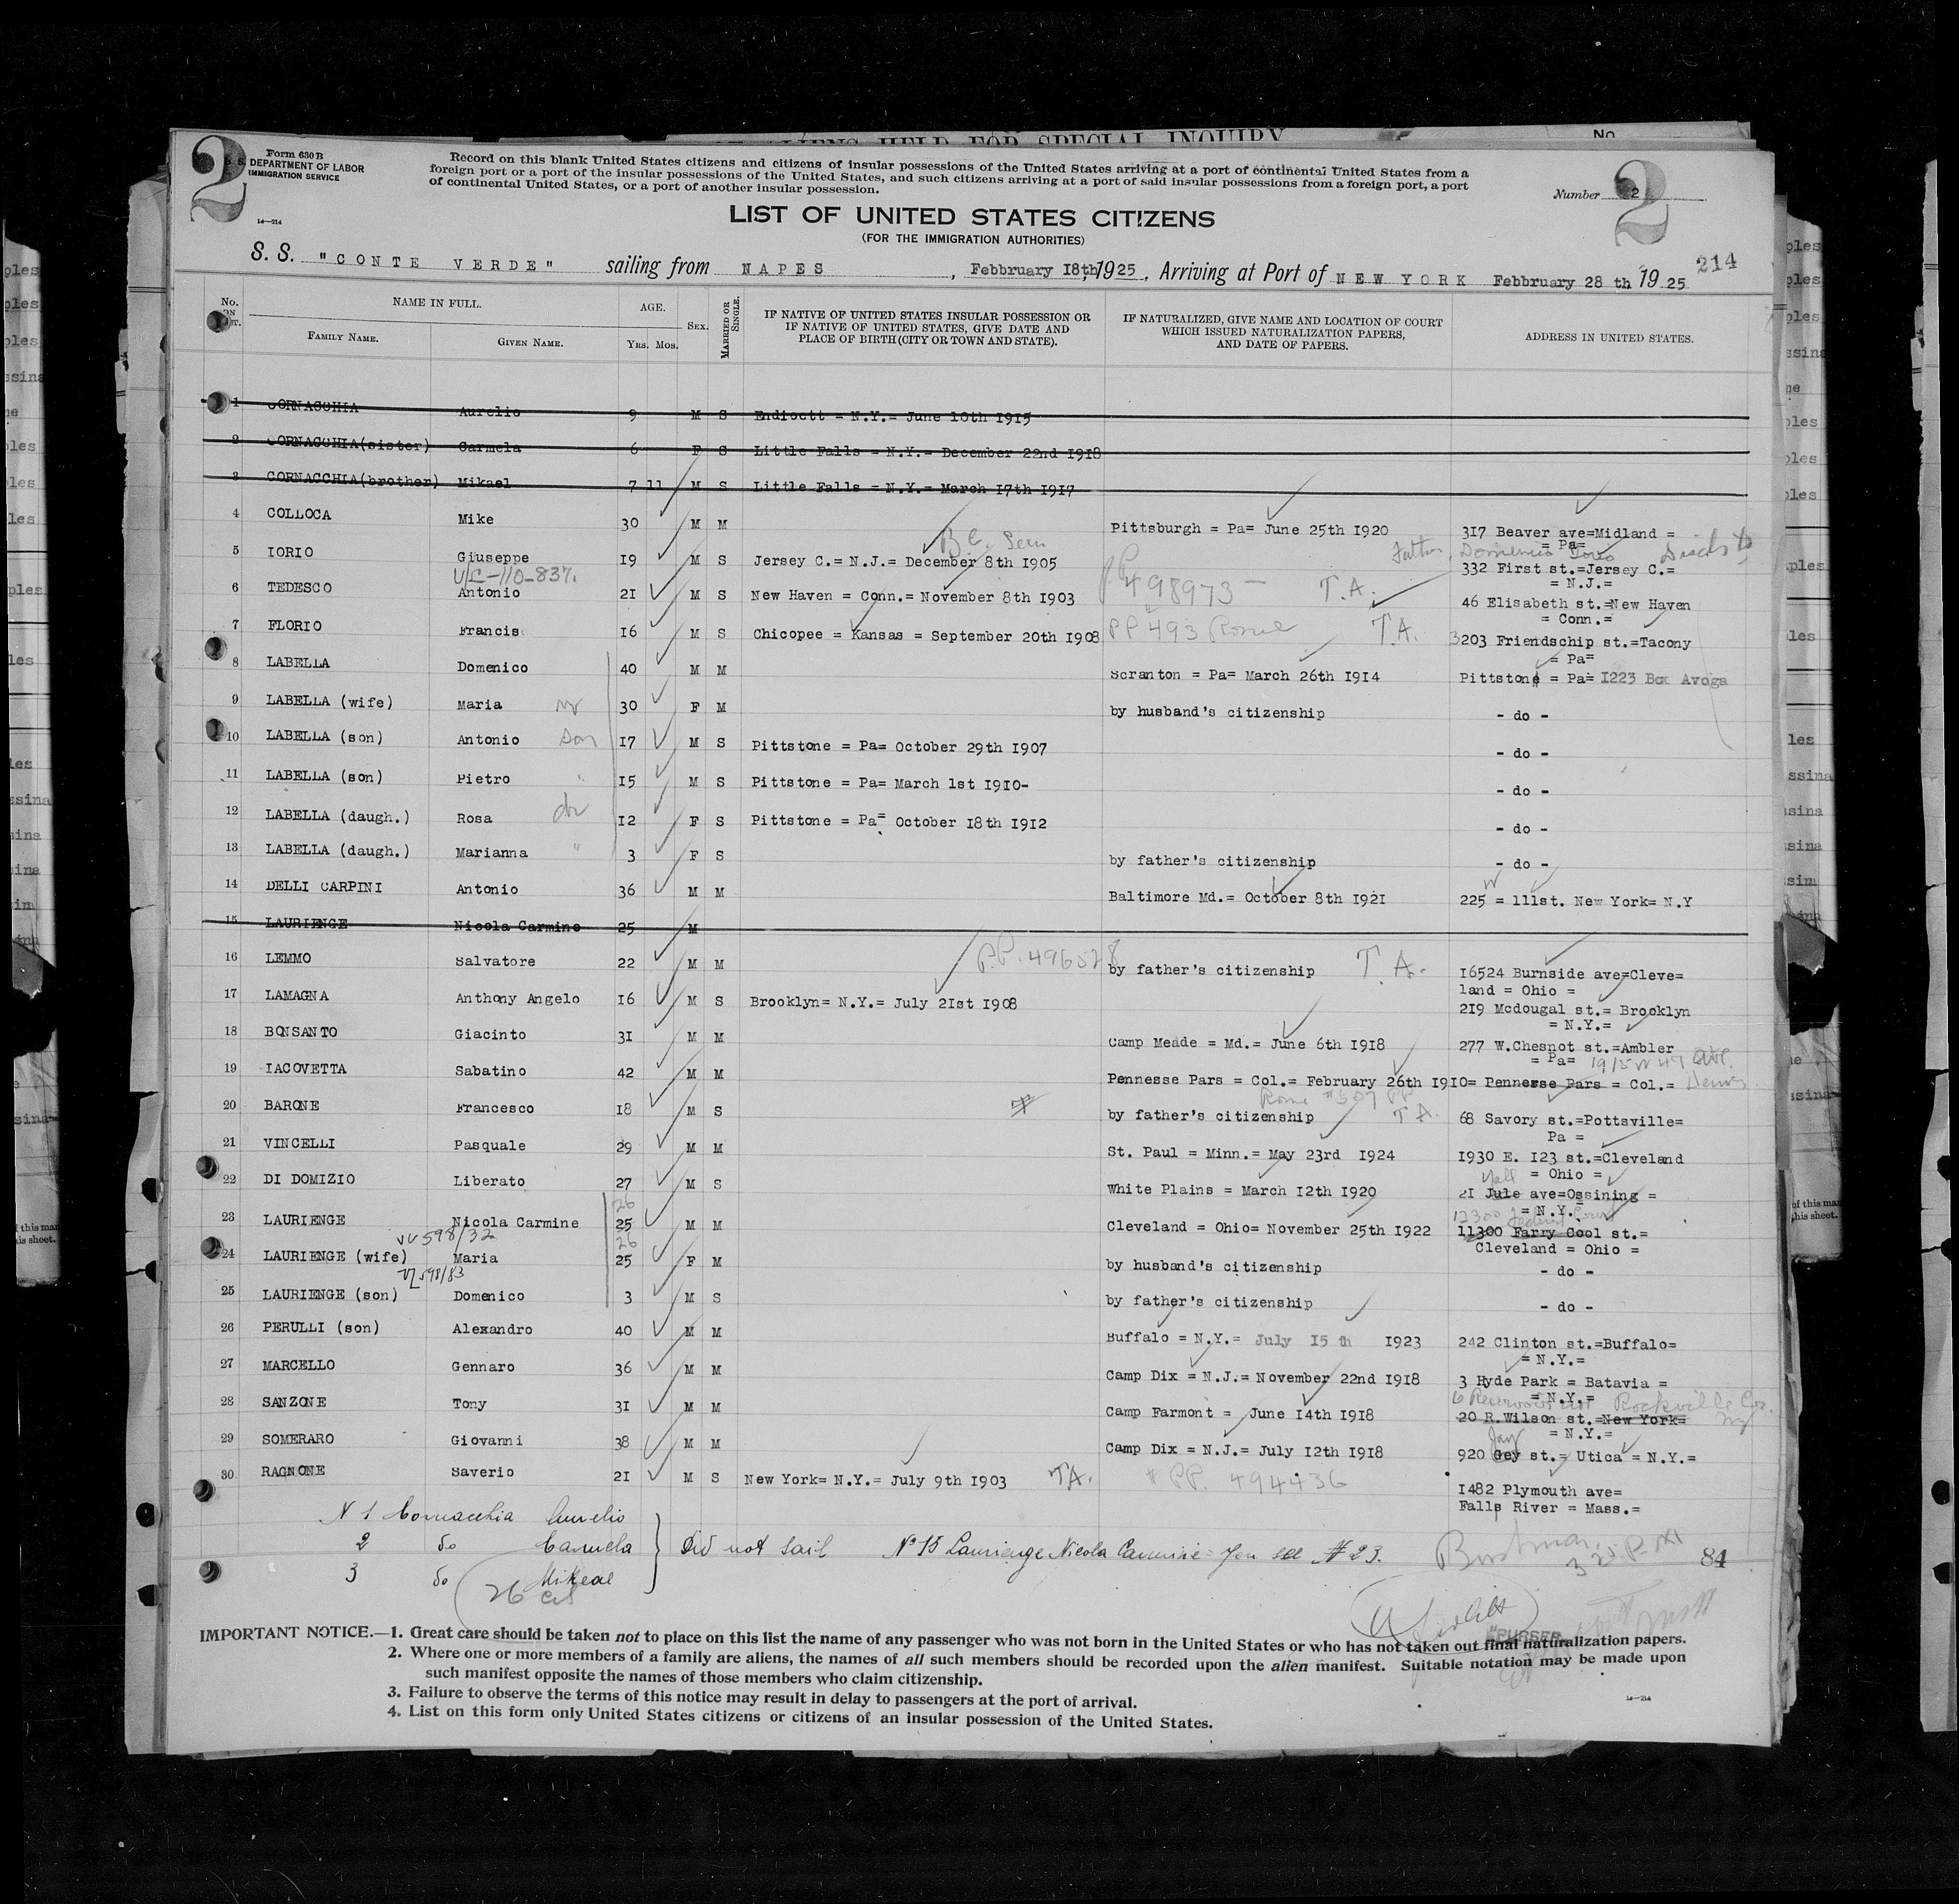 ALIENS HELD FOR SPECIAL INQUIRY
No
2
Form 630 B
U. S. DEPARTMENT OF LABOR
IMMIGRATION SERVICE
14—214
Record on this blank United States citizens and citizens of insular possessions of the United States arriving at a port of continental United States from a
foreign port or a port of the insular possessions of the United States, and such citizens arriving at a port of said insular possessions from a foreign port, a port
of continental United States, or a port of another insular possession.
Number 2
2
LIST OF UNITED STATES CITIZENS
(FOR THE IMMIGRATION AUTHORITIES)
S. S. "CONTE VERDE" sailing from NAPES, Febbruary 18th, 1925, Arriving at Port of NEW YORK Febbruary 28 th 1925
214
No. ON LIST. NAME IN FULL. AGE. SEX. MARRIED OR SINGLE. IF NATIVE OF UNITED STATES INSULAR POSSESSION OR IF NATIVE OF UNITED STATES, GIVE DATE AND PLACE OF BIRTH (CITY OR TOWN AND STATE). IF NATURALIZED, GIVE NAME AND LOCATION OF COURT WHICH ISSUED NATURALIZATION PAPERS, AND DATE OF PAPERS. ADDRESS IN UNITED STATES.
FAMILY NAME. GIVEN NAME. YRS. MOS.
1 CORNACCHIA Aurelio 9 M S Endicott = N.Y.= June 10th 1915
2 CORNACCHIA(sister) Carmela 6 F S Little Falls = N.Y.= December 22nd 1918
3 CORNACCHIA(brother) Mikael 7 11 M S Little Falls = N.Y.= March 17th 1917
4 COLLOCA Mike 30 M M Pittsburgh = Pa= June 25th 1920 317 Beaver ave=Midland =
= Pa=
B.C. Seen Father, Domenico Iorio
5 IORIO Giuseppe 19 M S Jersey C.= N.J.= December 8th 1905 332 First st.=Jersey C.=
= N.J.=
V/L-110-837.
6 TEDESCO Antonio 21 M S New Haven = Conn.= November 8th 1903 PP 498973 — T.A. 46 Elisabeth st.=New Haven
= Conn.=
7 FLORIO Francis 16 M S Chicopee = Kansas = September 20th 1908 PP 493 Rome T.A. 3203 Friendschip st.=Tacony
= Pa=
8 LABELLA Domenico 40 M M Scranton = Pa= March 26th 1914 Pittstone = Pa= 1223 Box Avoga
9 LABELLA (wife) Maria 30 F M by husband's citizenship - do -
10 LABELLA (son) Antonio son 17 M S Pittstone = Pa= October 29th 1907 - do -
11 LABELLA (son) Pietro " 15 M S Pittstone = Pa= March 1st 1910- - do -
12 LABELLA (daugh.) Rosa 12 F S Pittstone = Pa= October 18th 1912 - do -
13 LABELLA (daugh.) Marianna " 3 F S by father's citizenship - do -
14 DELLI CARPINI Antonio 36 M M Baltimore Md.= October 8th 1921 225 = W 111st. New York= N.Y
15 LAURIENGE Nicola Carmine 25 M
16 LEMMO Salvatore 22 M M P.P. 496528 by father's citizenship T.A. 16524 Burnside ave=Cleve=
land = Ohio =
17 LAMAGNA Anthony Angelo 16 M S Brooklyn= N.Y.= July 21st 1908 219 Mcdougal st.= Brooklyn
= N.Y.=
18 BONSANTO Giacinto 31 M M Camp Meade = Md.= June 6th 1918 277 W.Chesnot st.=Ambler
= Pa=
1915 W 47 ave.
19 IACOVETTA Sabatino 42 M M Pennesse Pars = Col.= February 26th 1910= Pennesse Pars = Col.= Denver
Rome # 507 PP
20 BARONE Francesco 18 M S by father's citizenship T A. 68 Savory st.=Pottsville=
Pa =
21 VINCELLI Pasquale 29 M M St. Paul = Minn.= May 23rd 1924 1930 E. 123 st.=Cleveland
= Ohio =
22 DI DOMIZIO Liberato 27 M S White Plains = March 12th 1920 21 Jule ave=Ossining =
= N.Y.=
12300
26
23 LAURIENGE Nicola Carmine 25 M M Cleveland = Ohio= November 25th 1922 11300 Farry Cool st.=
Cleveland = Ohio =
26
24 LAURIENGE (wife) Maria 25 F M by husband's citizenship - do -
25 LAURIENGE (son) Domenico 3 M S by father's citizenship - do -
26 PERULLI (son) Alexandro 40 M M Buffalo = N.Y.= July 15 th 1923 242 Clinton st.=Buffalo=
= N.Y.=
27 MARCELLO Gennaro 36 M M Camp Dix = N.J.= November 22nd 1918 3 Hyde Park = Batavia =
= N.Y.=
Rockville Cen.
28 SANZONE Tony 31 M M Camp Farmont = June 14th 1918 20 R.Wilson st.=New York= NY
= N.Y.=
Jay
29 SOMERARO Giovanni 38 M M Camp Dix = N.J.= July 12th 1918 920 Gey st.= Utica = N.Y.=
30 RAGNONE Saverio 21 M S New York= N.Y.= July 9th 1903 T.A. # PP. 494436 1482 Plymouth ave=
Falls River = Mass.=
N 1 Cornacchia Aurelio
2 do Carmela } Did not sail N° 15 Laurienge Nicola Carmine = You see # 23.
3 do Mikeal
26 cit
84
PURSER
IMPORTANT NOTICE.—1. Great care should be taken not to place on this list the name of any passenger who was not born in the United States or who has not taken out final naturalization papers.
2. Where one or more members of a family are aliens, the names of all such members should be recorded upon the alien manifest. Suitable notation may be made upon
such manifest opposite the names of those members who claim citizenship.
3. Failure to observe the terms of this notice may result in delay to passengers at the port of arrival.
4. List on this form only United States citizens or citizens of an insular possession of the United States.
14—214